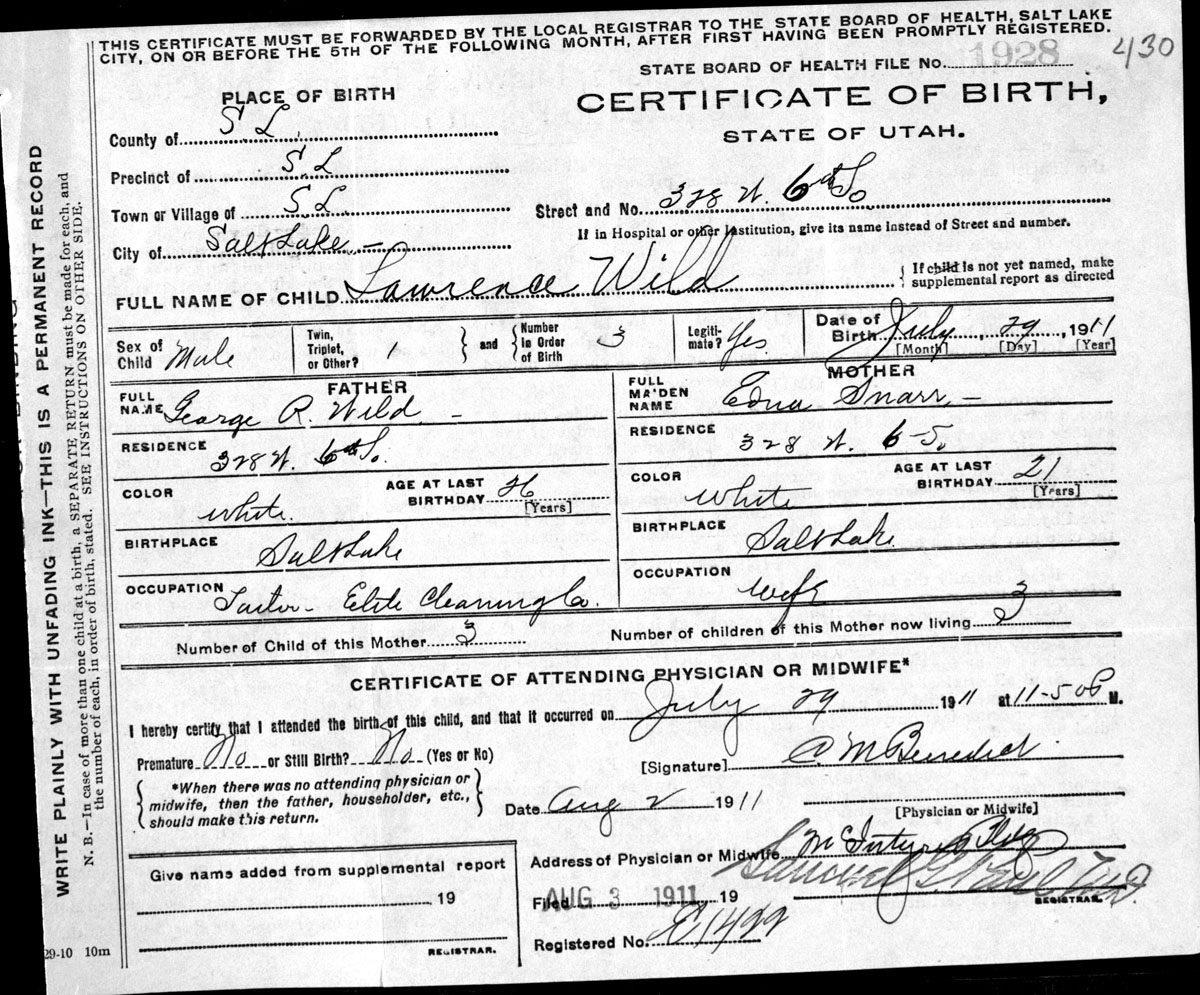 THIS CERTIFICATE MUST BE FORWARDED BY THE LOCAL REGISTRAR TO THE STATE BOARD OF HEALTH, SALT LAKE
CITY, ON OR BEFORE THE 5TH OF THE FOLLOWING MONTH, AFTER FIRST HAVING BEEN PROMPTLY REGISTERED.
430
STATE BOARD OF HEALTH FILE No. 1928
PLACE OF BIRTH
CERTIFICATE OF BIRTH,
STATE OF UTAH.
County of S L.
Precinct of S. L
Town or Village of S L
Street and No. 328 W. 6th So
If in Hospital or other Institution, give its name instead of Street and number.
City of Salt Lake -
FULL NAME OF CHILD Lawrence Wild
If child is not yet named, make
supplemental report as directed
Sex of Child Male
Twin, Triplet, or Other? 1
and
Number in Order of Birth 3
Legiti-mate? Yes
Date of Birth July 29, 1911
[Month] [Day] [Year]
FATHER
FULL NAME George R. Wild -
RESIDENCE
328 W. 6th So.
COLOR White.
AGE AT LAST BIRTHDAY 26
[Years]
BIRTHPLACE
Salt Lake
OCCUPATION
Elite Cleaning Co.
MOTHER
FULL MAIDEN NAME Edna Snarr -
RESIDENCE
328 W. 6-So.
COLOR White
AGE AT LAST BIRTHDAY 21
[Years]
BIRTHPLACE
Salt Lake
OCCUPATION
Wife
Number of Child of this Mother 3
Number of children of this Mother now living 3
CERTIFICATE OF ATTENDING PHYSICIAN OR MIDWIFE*
I hereby certify that I attended the birth of this child, and that it occurred on July 29 1911 at 11-50 P M.
Premature No or Still Birth? No (Yes or No)
[Signature] C M Benedict.
*When there was no attending physician or
midwife, then the father, householder, etc.,
should make this return.
Date Aug 2 1911
[Physician or Midwife]
Address of Physician or Midwife McIntyre Bldg
Give name added from supplemental report
19
REGISTRAR.
Filed AUG 3 1911 19
REGISTRAR.
Registered No. 1422
29-10 10m
WRITE PLAINLY WITH UNFADING INK—THIS IS A PERMANENT RECORD
N. B.—In case of more than one child at a birth, a SEPARATE RETURN must be made for each, and
the number of each, in order of birth, stated. SEE INSTRUCTIONS ON OTHER SIDE.